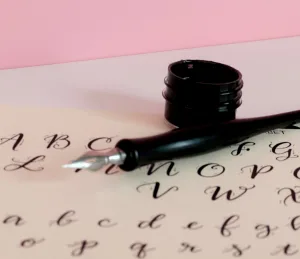 A B C F G
L M N O P Q
V W X
a b c d e f g
o p q r s t